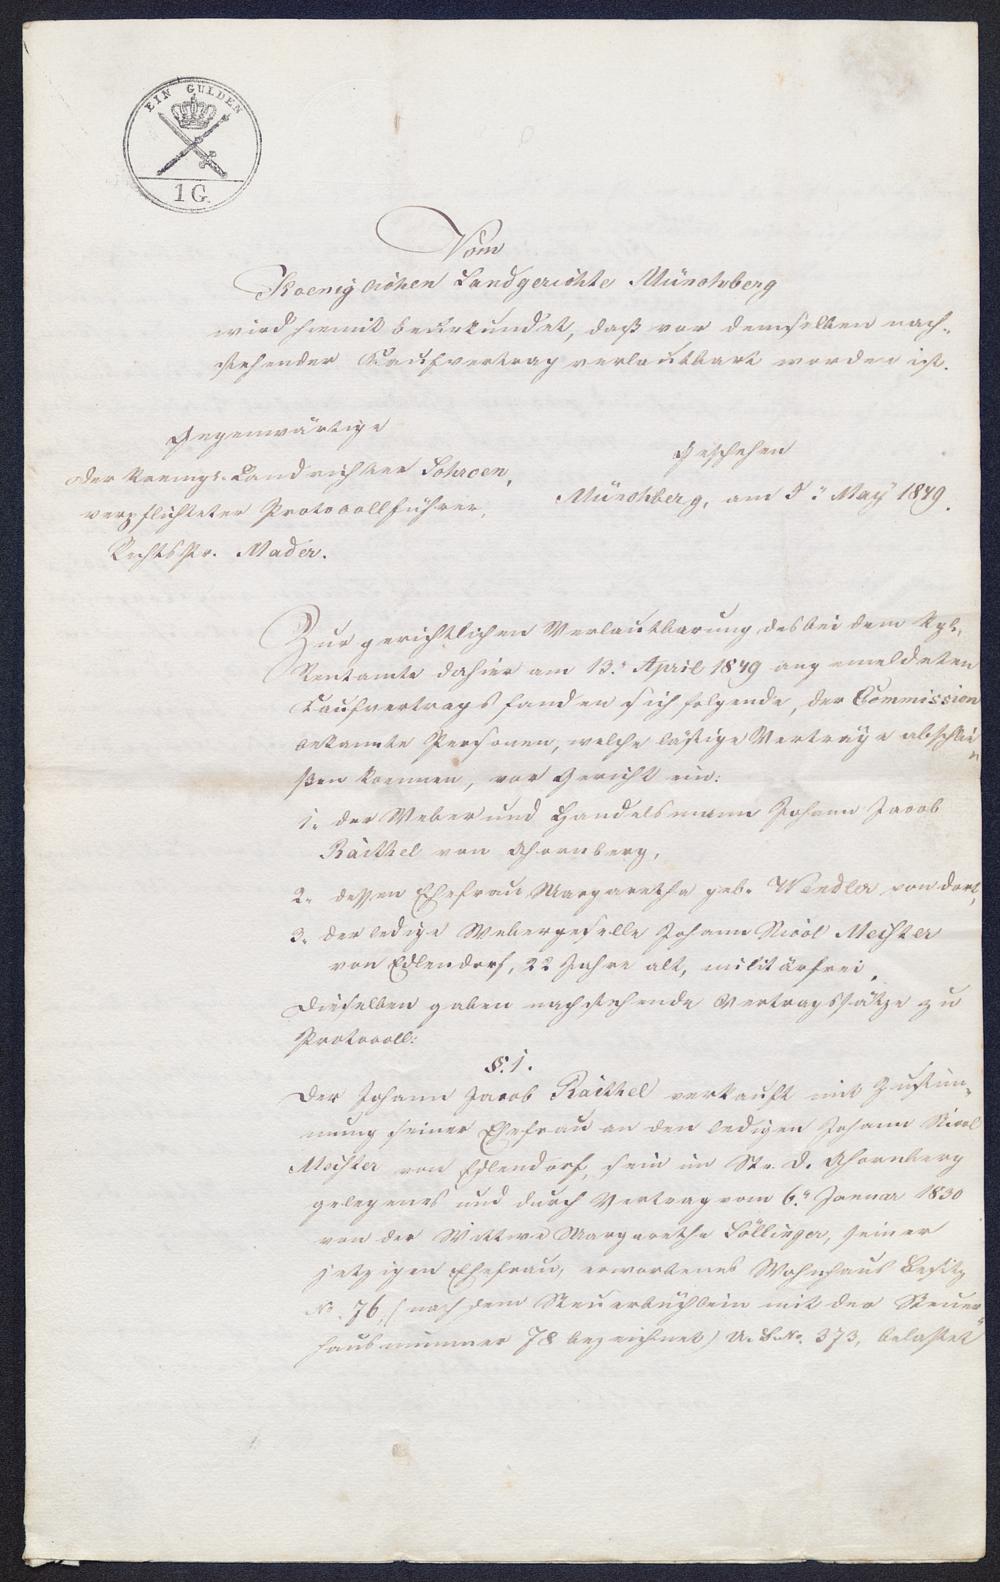 EIN GULDEN
1 G.
Vom
Koeniglichen Landgerichte Münchberg
wird hiemit beurkundet, daß vor demselben nach-
stehender Kaufvertrag verlautbart worden ist.
Gegenwärtige
der koenigl. Landrichter Schroen,
verpflichteter Protocollführer,
Rechtspr. Mader.
Geschehen
Münchberg, am 5. May 1849.
Zur gerichtlichen Verlautbarung des bei dem Kgl.
Rentamte dahier am 13. April 1849 angemeldeten
Kaufvertrags fanden sich folgende, der Commission
bekannte Personen, welche lästige Verträge abschlie-
ßen koennen, vor Gericht ein:
1. der Weber und Handelsmann Johann Jacob
Raithel von Ahornberg,
2. dessen Ehefrau Margaretha geb. Wendler von dort,
3. der ledige Webergeselle Johann Nicol Meister
von Edlendorf, 22 Jahre alt, militärfrei.
Dieselben gaben nachstehende Vertragssätze zu
Protocoll:
§. 1.
Der Johann Jacob Raithel verkauft mit Zustim-
mung seiner Ehefrau an den ledigen Johann Nicol
Meister von Edlendorf, sein im St. D. Ahornberg
gelegenes und durch Vertrag vom 6. Januar 1830
von der Wittwe Margaretha Söllinger, seiner
jetzigen Ehefrau, erworbenes Wohnhaus Besitz
No. 76, (nach dem Steuerbüchlein mit der Steuer-
hausnummer 78 bezeichnet) U. B. No. 373, belastet